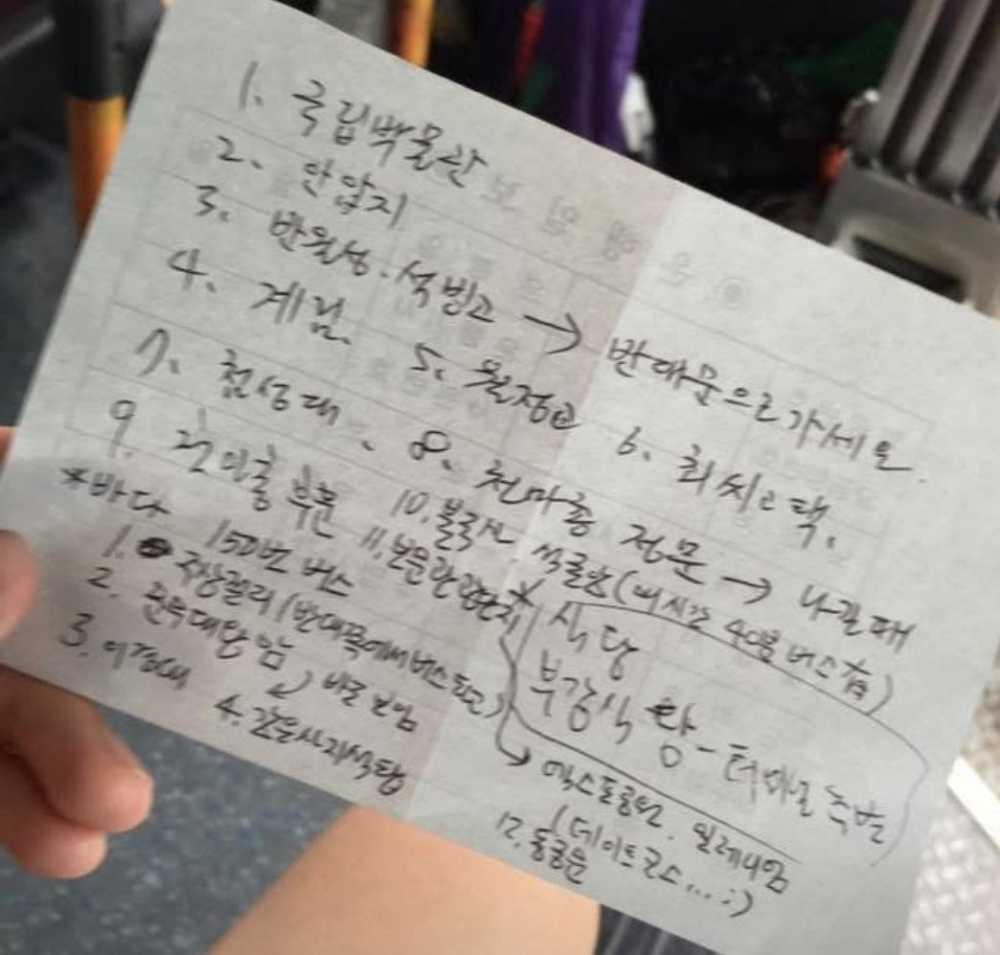 1. 국립박물관
2. 안압지
3. 반월성. 석빙고 → 반대문으로 가세요.
4. 계림. 5. 월정교 6. 최씨고택.
7. 첨성대. 8. 천마총 정문 → 나갈때
9. 후문 10. 불국사 석굴암 (매시간 40분 버스有)
*바다 150번 버스 11. 보문관광단지
1. 주상절리 (반대쪽에서 버스타고)
2. 문무대왕암 바로 보임
3. 이견대 4. 감은사지석탑
* 식당
부강식당 - 터미널
→ 엑스포공원. 밀레니엄
(데이트코스...:)
12. 동궁원